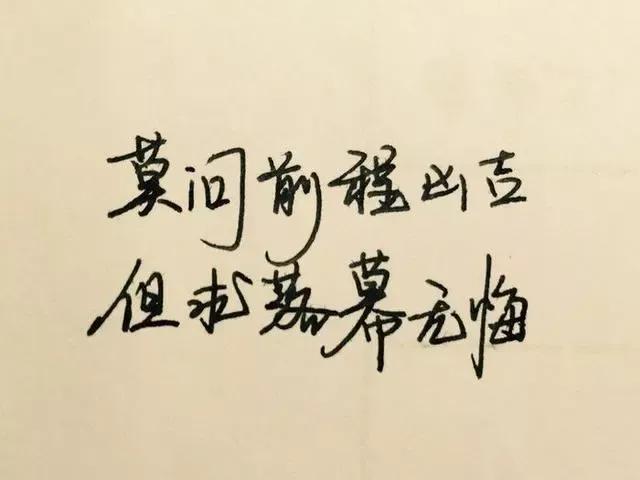 莫问前程凶吉
但求落幕无悔